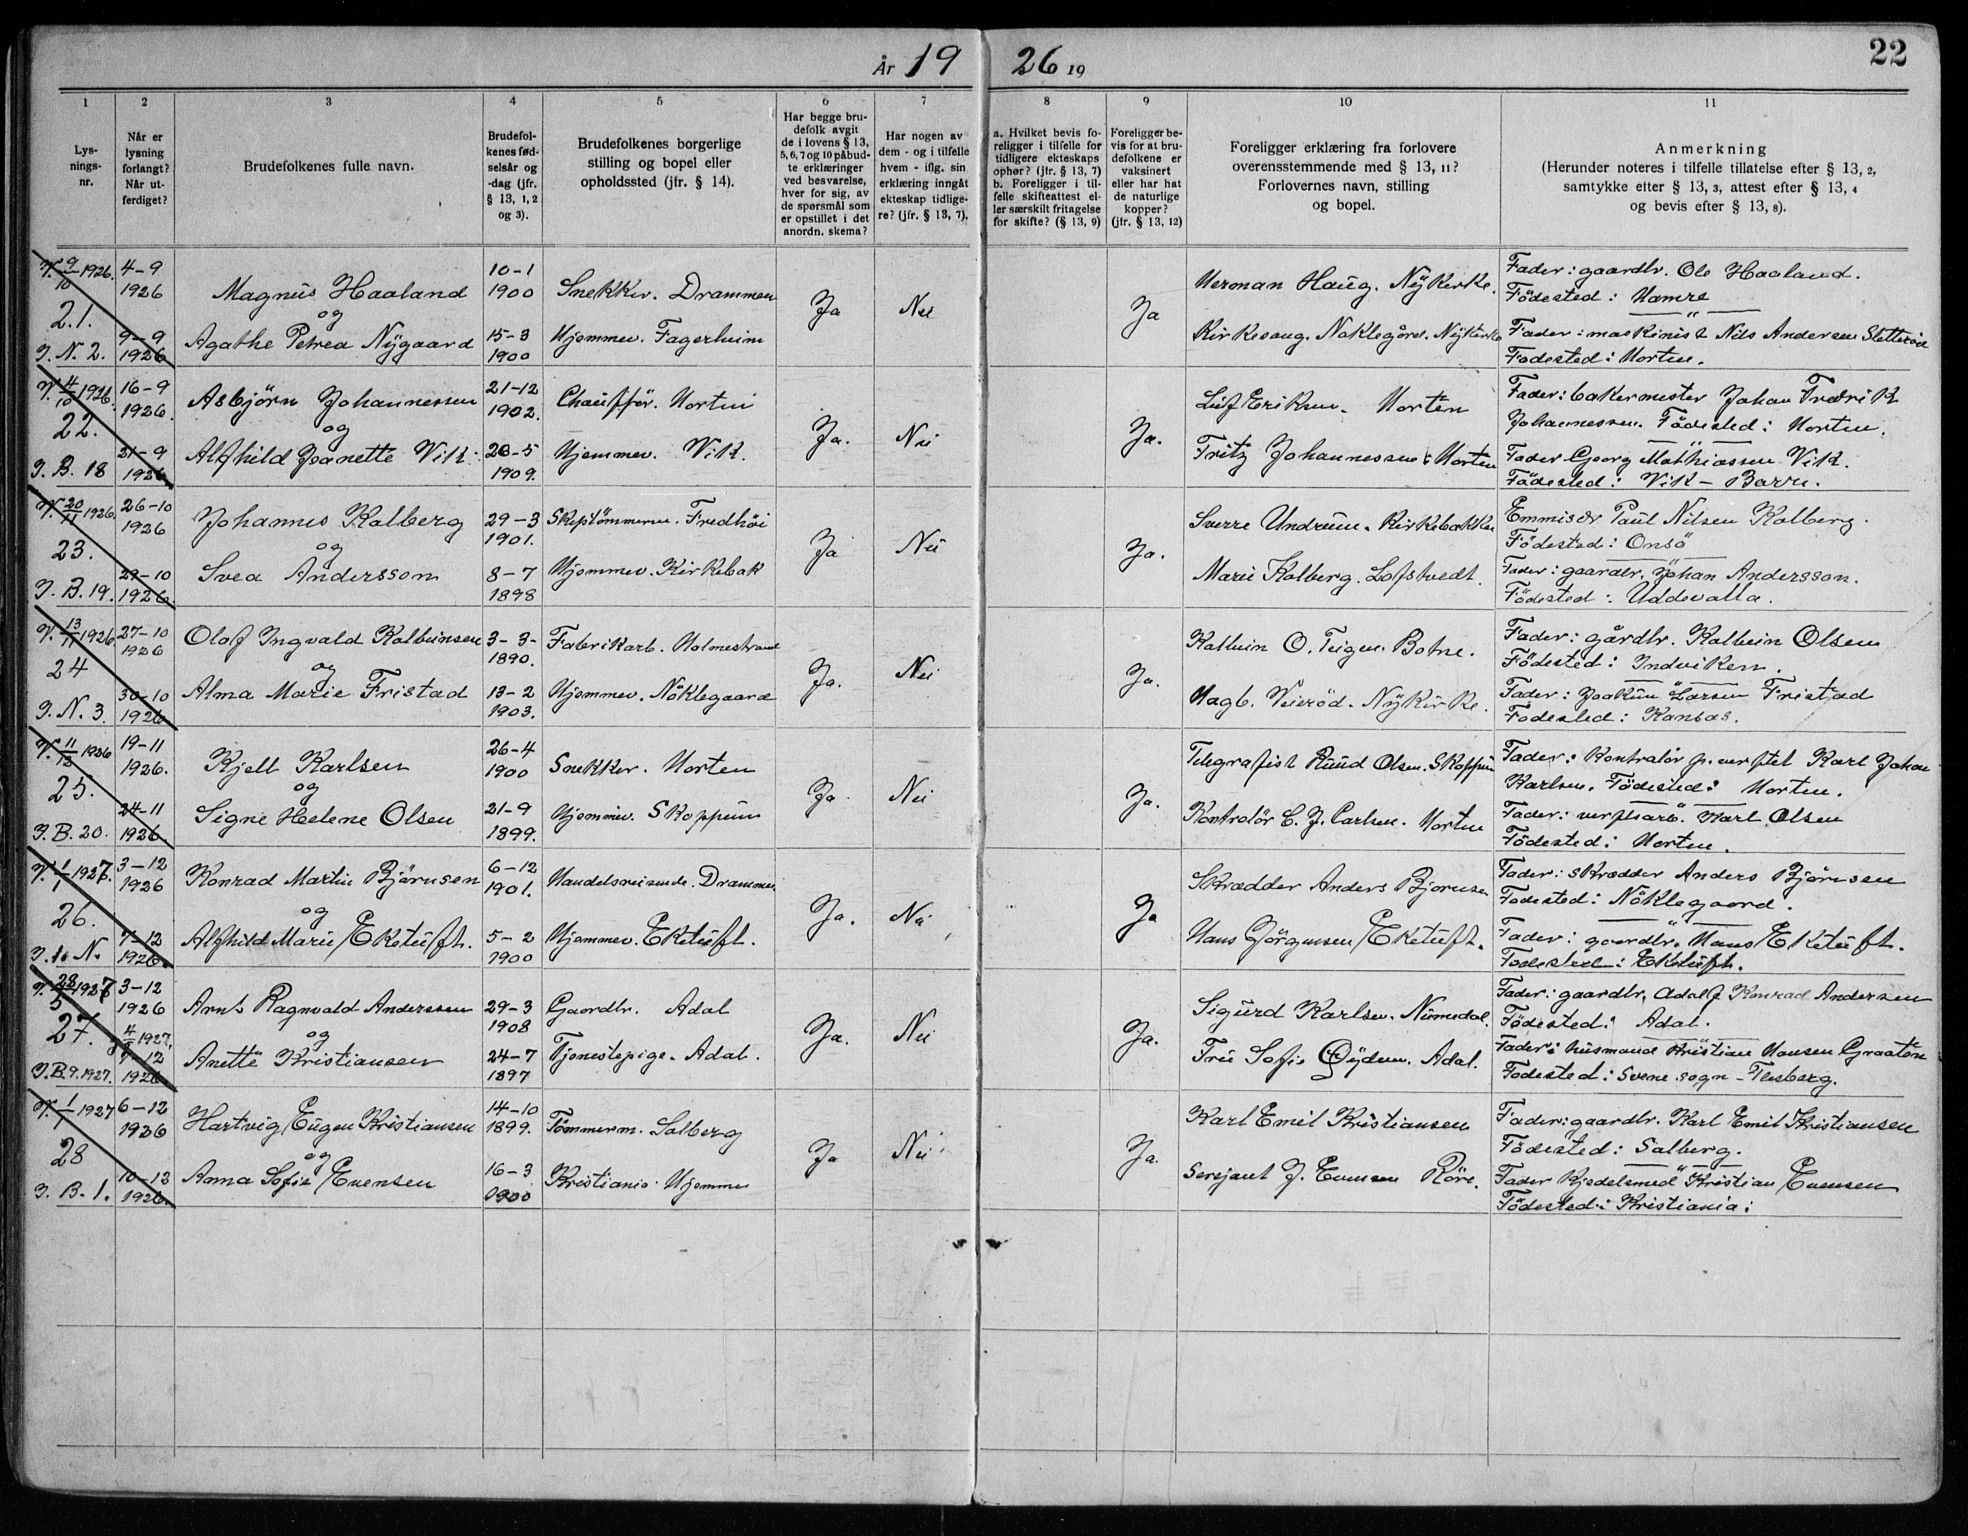 År 19 26 19
22
1
2
3
4
5
6
7
8
9
10
11
Lys-
nings-
nr.
Når er
lysning
forlangt?
Når ut-
ferdiget?
Brudefolkenes fulle navn.
Brudefol-
kenes fød-
selsår og
-dag (jfr.
§ 13, 1, 2
og 3).
Brudefolkenes borgerlige
stilling og bopel eller
opholdssted (jfr. § 14).
Har begge bru-
defolk avgit
de i lovens § 13,
5, 6, 7 og 10 påbud-
te erklæringer
ved besvarelse,
hver for sig, av
de spørsmål som
er opstillet i det
anordn. skema?
Har nogen av
dem - og i tilfelle
hvem - iflg. sin
erklæring inngått
ekteskap tidlige-
re? (jfr. § 13, 7).
a. Hvilket bevis fo-
religger i tilfelle for
tidligere ekteskaps
ophør? (jfr. § 13, 7)
b. Foreligger i til-
felle skifteattest el-
ler særskilt fritagelse
for skifte? (§ 13, 9)
Foreligger be-
vis for at bru-
defolkene er
vaksinert
eller har hat
de naturlige
kopper?
(jfr. § 13, 12)
Foreligger erklæring fra forlovere
overensstemmende med § 13, 11?
Forlovernes navn, stilling
og bopel.
Anmerkning
(Herunder noteres i tilfelle tillatelse efter § 13, 2,
samtykke etter § 13, 3, attest efter § 13, 4
og bevis efter § 13, 8).
V. 9/10 1926.
21.
J. N. 2.
4-9
1926
9-9
1926
Magnus Haaland
og
Agathe Petrea Nygaard
10-1
1900
15-3
1900
Snekker. Drammen
Hjemmev. Fagerheim
Ja
Nei
Ja
Herman Haug. Nykirke.
Kirkesang. Noklegård. Nykirke
Fader: gaardbr. Ole Haaland.
Födested: Hamre
Fader: maskinist Nils Andersen Sletterød
Fodested: Horten.
V. 4/10 1926.
22.
J. B. 18
16-9
1926.
21-9
1926.
Asbjörn Johannessen
og
Alfhild Jeanette Vik.
21-12
1902.
23-5
1909.
Chauffør. Horten
Hjemmev. Vik.
Ja.
Nei
Ja.
Leif Eriksen. Horten
Fritz Johannessen. Horten
Fader: bakermester Johan Fredrik
Johannessen. Födested: Horten.
Fader Georg Mathiassen Vik.
Födested: Vik - Borre.
V. 20/11 1926.
23.
J. B. 19.
26-10
1926
29-10
1926.
Johannes Kalberg
og
Svea Andersson
29-3
1901.
8-7
1898
Skipstömmerm. Fredhöi
Hjemmev. Kirkebak
Ja
Nei
Ja.
Sverre Undrum. Kirkebakken
Marie Kalberg. Lofstvedt.
Emmisær Paul Nilsen Kalberg.
Födested: Onsö
Fader: gaardbr. Johan Andersson.
Födested: Uddevalla.
V. 13/11 1926.
24
J. N. 3.
27-10
1926
30-10
1926
Olaf Ingvald Kolbeinsen
og
Alma Marie Fristad
3-3-
1890.
13-2
1903.
Fabrikarb. Holmestrand
Hjemmev. Nöklegaard
Ja.
Nei
Ja.
Kolbein O. Teigen. Botne.
Hagb. Veieröd. Nykirke.
Fader: gårdbr. Kolbein Olsen
Födested: Indviken.
Fader: Joakim Larsen Fristad
Fodested: Kansas.
V. 11/12 1926
25.
J. B. 20.
19-11
1926.
24-11
1926.
Kjell Karlsen
og
Signe Helene Olsen
26-4
1900
21-9
1899.
Snekker. Horten
Hjemmev. Skoppum
Ja
Nei
Ja.
Telegrafist Ruud Olsen. Skoppum
Kontrolör C. J. Carlsen. Horten
Fader: Kontralör p. verftet Karl Johan
Karlsen. Födested: Horten.
Fader: verftsarb. Karl Olsen
Födested: Horten.
V. 1/1 1927.
26.
J. 1. N.
3-12
1926
7-12
1926.
Konrad Martin Björnsen
og
Alfhild Marie Eketuft.
6-12
1901.
5-2
1900
Handelsreisende. Drammen.
Hjemmev. Eketuft.
Ja.
Nei
Ja
Skrædder Anders Bjørnsen
Hans Jörgensen Eketuft.
Fader: skrædder Anders Björnsen
Fodested: Nöklegaard.
Fader: gaardbr. Hans Eketuft.
Fodested: Eketuft.
V. 28/5 1927
27.
J. B. 9. 1927.
3-12
1926
4/5 1927.
7-12
1926
Arnt Ragnvald Anderssen
og
Anette Kristiansen
29-3
1908
24-7
1897
Gaardbr. Adal
Tjenestepige. Adal.
Ja.
Nei
Ja.
Sigurd Karlsen. Numedal.
Fru Sofie Öydne. Adal.
Fader: gaardbr. Adolf Konrad Andersen
Födested: Adal.
Fader: husmand Kristian Hansen Graaten
Fodested: Svene sogn - Flesberg.
V. 1/1 1927
28
J. B. 1.
6-12
1926
10-12
1926.
Hartvig Eugen Kristiansen
og
Anna Sofie Evensen
14-10
1899.
16-3
1900
Tömmerm. Solberg
Kristiania. Hjemme
Ja
Nei
Ja.
Karl Emil Kristiansen
Sersjant J. Evensen Röre.
Fader: gaardbr. Karl Emil Kristiansen
Födested: Solberg.
Fader Kjedelsmed Kristian Evensen
Födested: Kristiania: